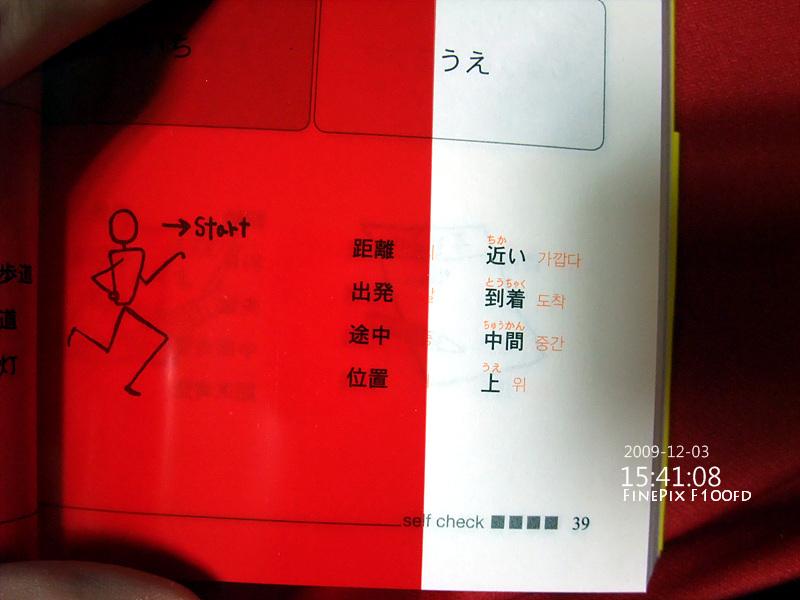 ち
うえ
→Start
歩道
道
灯
距離
出発
途中
位置
ちか
近い 가깝다
とうちゃく
到着 도착
ちゅうかん
中間 중간
うえ
上 위
self check 39
2009-12-03
15:41:08
FINEPIX F100FD